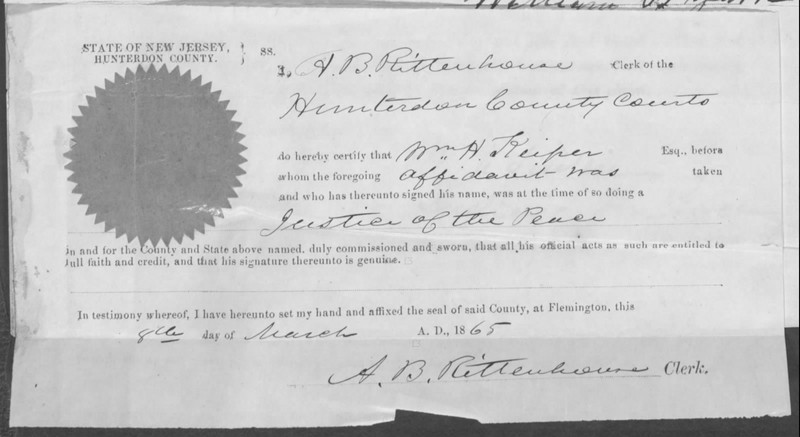 STATE OF NEW JERSEY,
HUNTERDON COUNTY. } ss.
I, A. B. Rittenhouse Clerk of the
Hunterdon County Courts
do hereby certify that Wm H. Keiper Esq., before
whom the foregoing affidavit was taken
and who has thereunto signed his name, was at the time of so doing a
Justice of the Peace
in and for the County and State above named, duly commissioned and sworn, that all his official acts as such are entitled to
full faith and credit, and that his signature thereunto is genuine.
In testimony whereof, I have hereunto set my hand and affixed the seal of said County, at Flemington, this
8th day of March A. D., 1865
A. B. Rittenhouse Clerk.